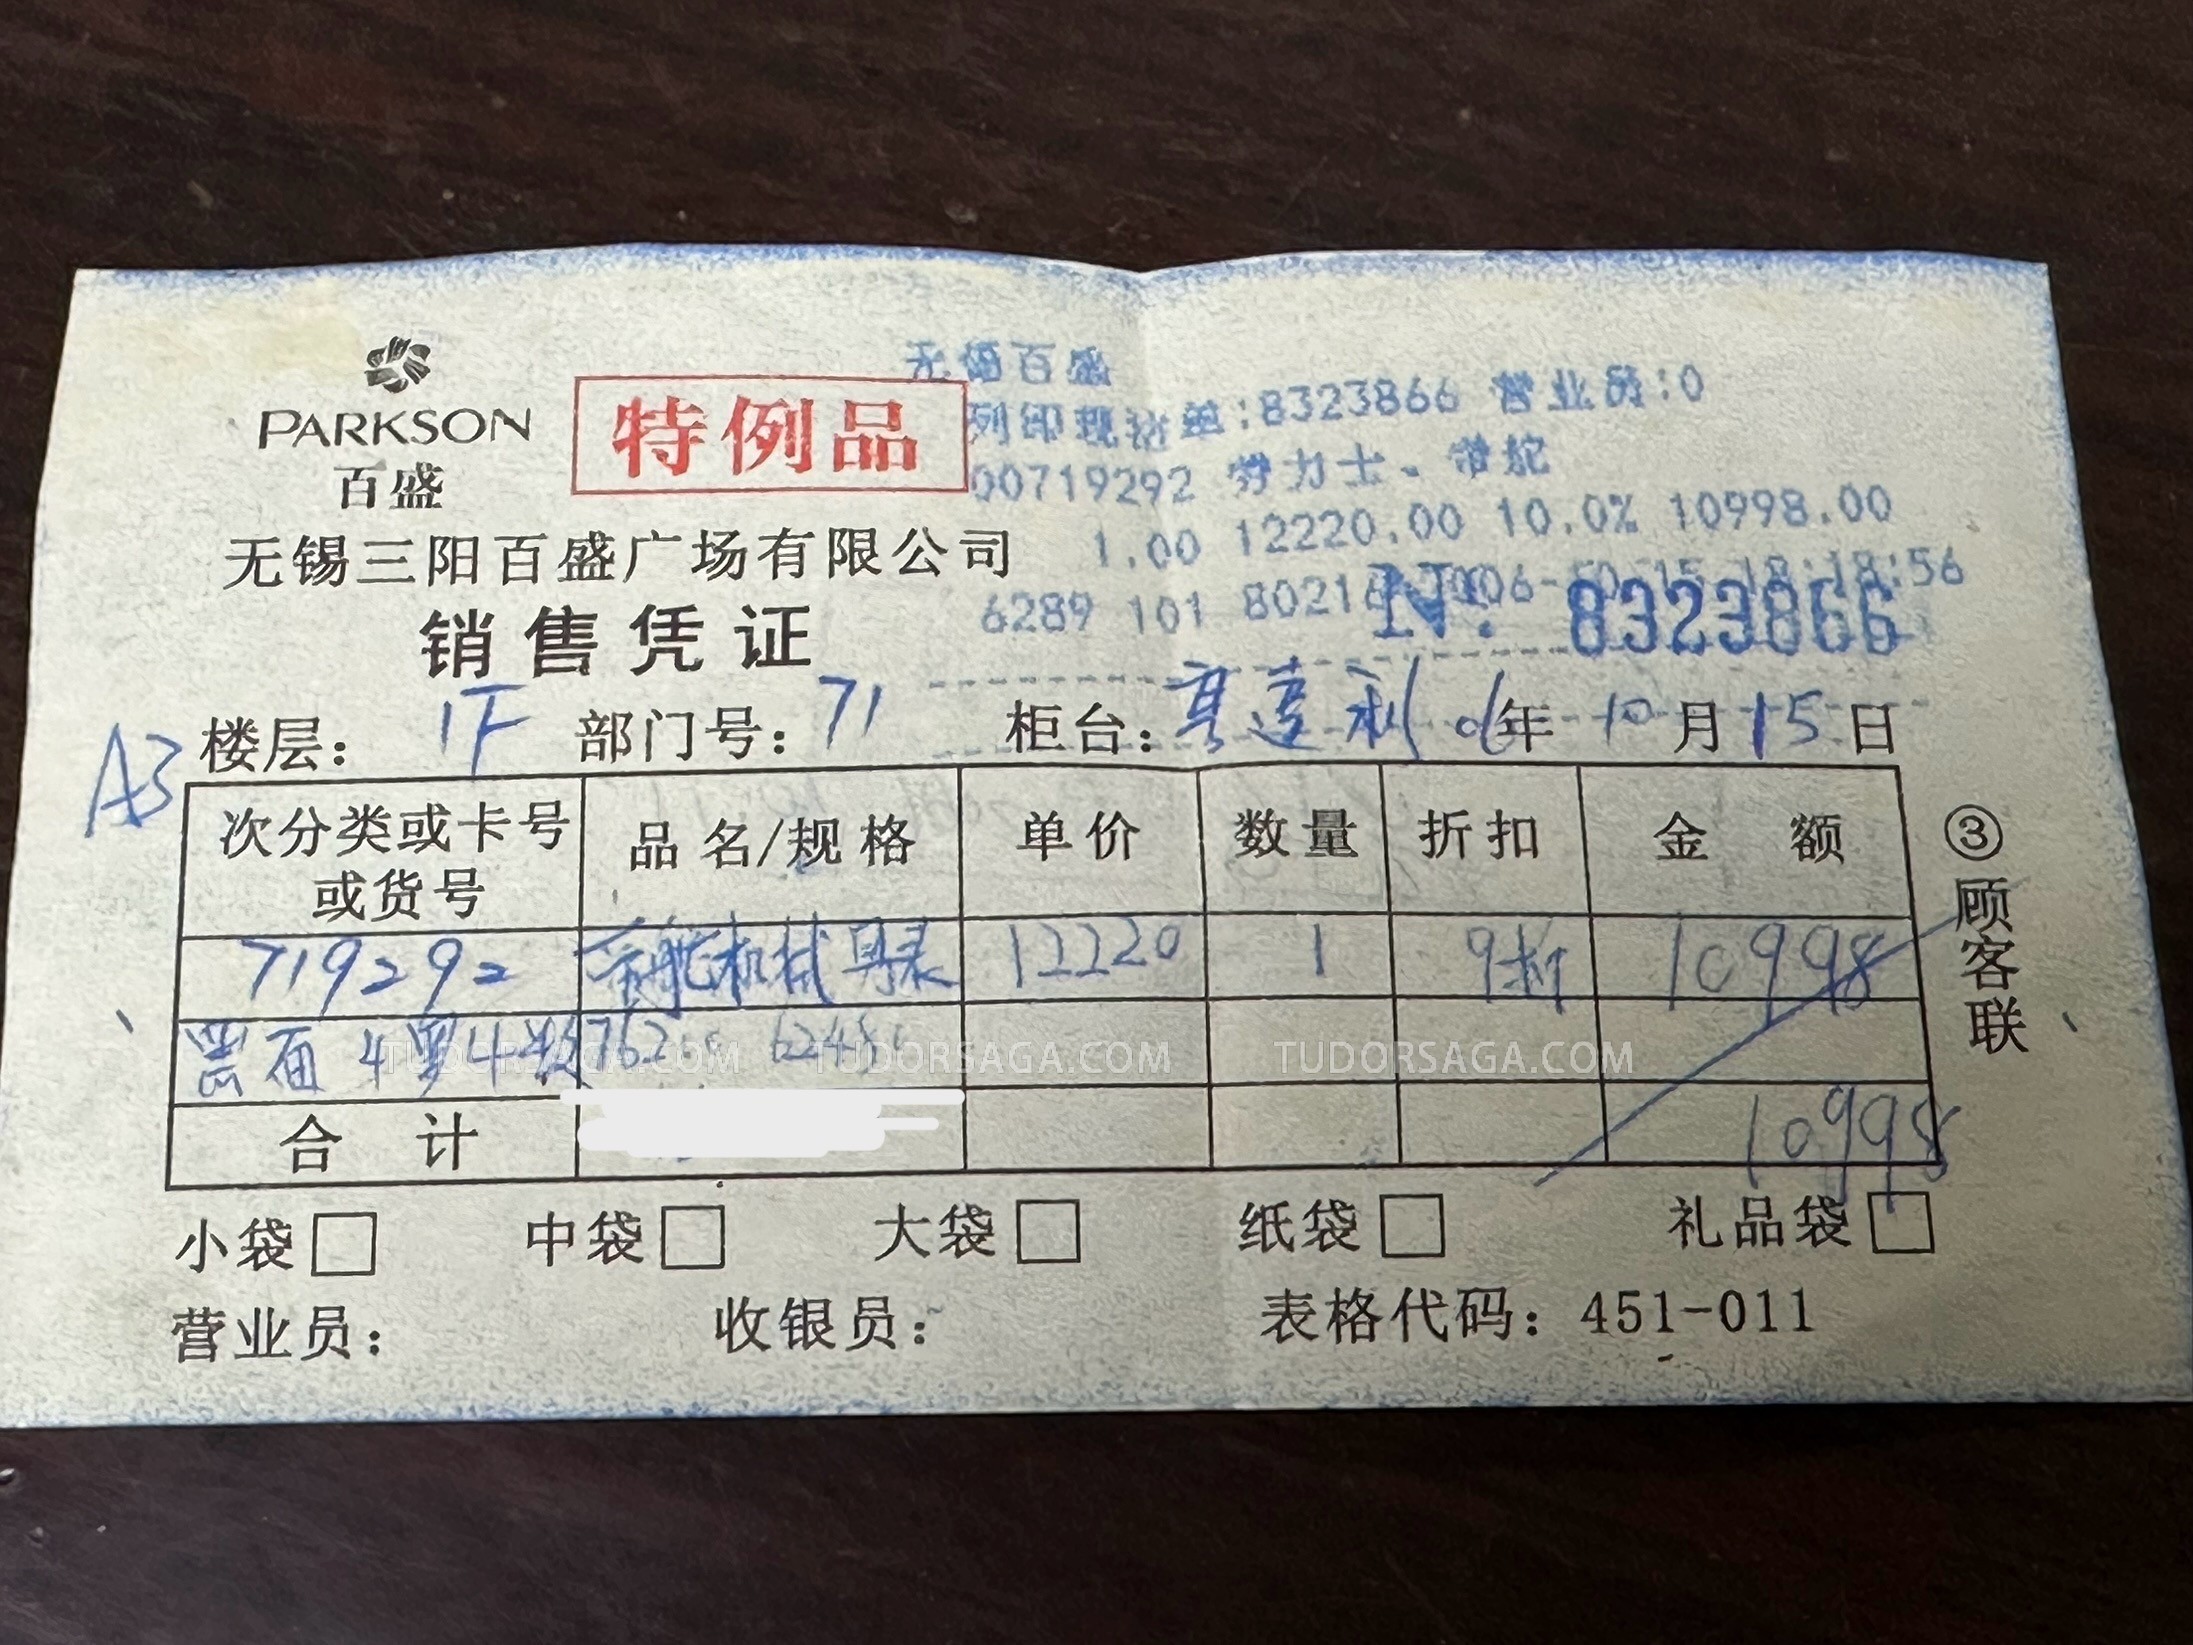 PARKSON
百盛
特例品
无锡百盛
列印现法单:8323866 营业员:0
00719292 劳力士、帝舵
1.00 12220.00 10.0% 10998.00
无锡三阳百盛广场有限公司
6289 101 80216 006-10-15 18:18:56
№ 8323866
销售凭证
A3
楼层: 1F 部门号: 71 柜台: 亨达利 06年 10月 15日
次分类或卡号或货号 品名/规格 单价 数量 折扣 金额
719292 帝舵机械男表 12220 1 9折 10998
黑面
TUDORSAGA.COM TUDORSAGA.COM TUDORSAGA.COM
合计 10998
③顾客联
小袋 中袋 大袋 纸袋 礼品袋
营业员: 收银员: 表格代码: 451-011